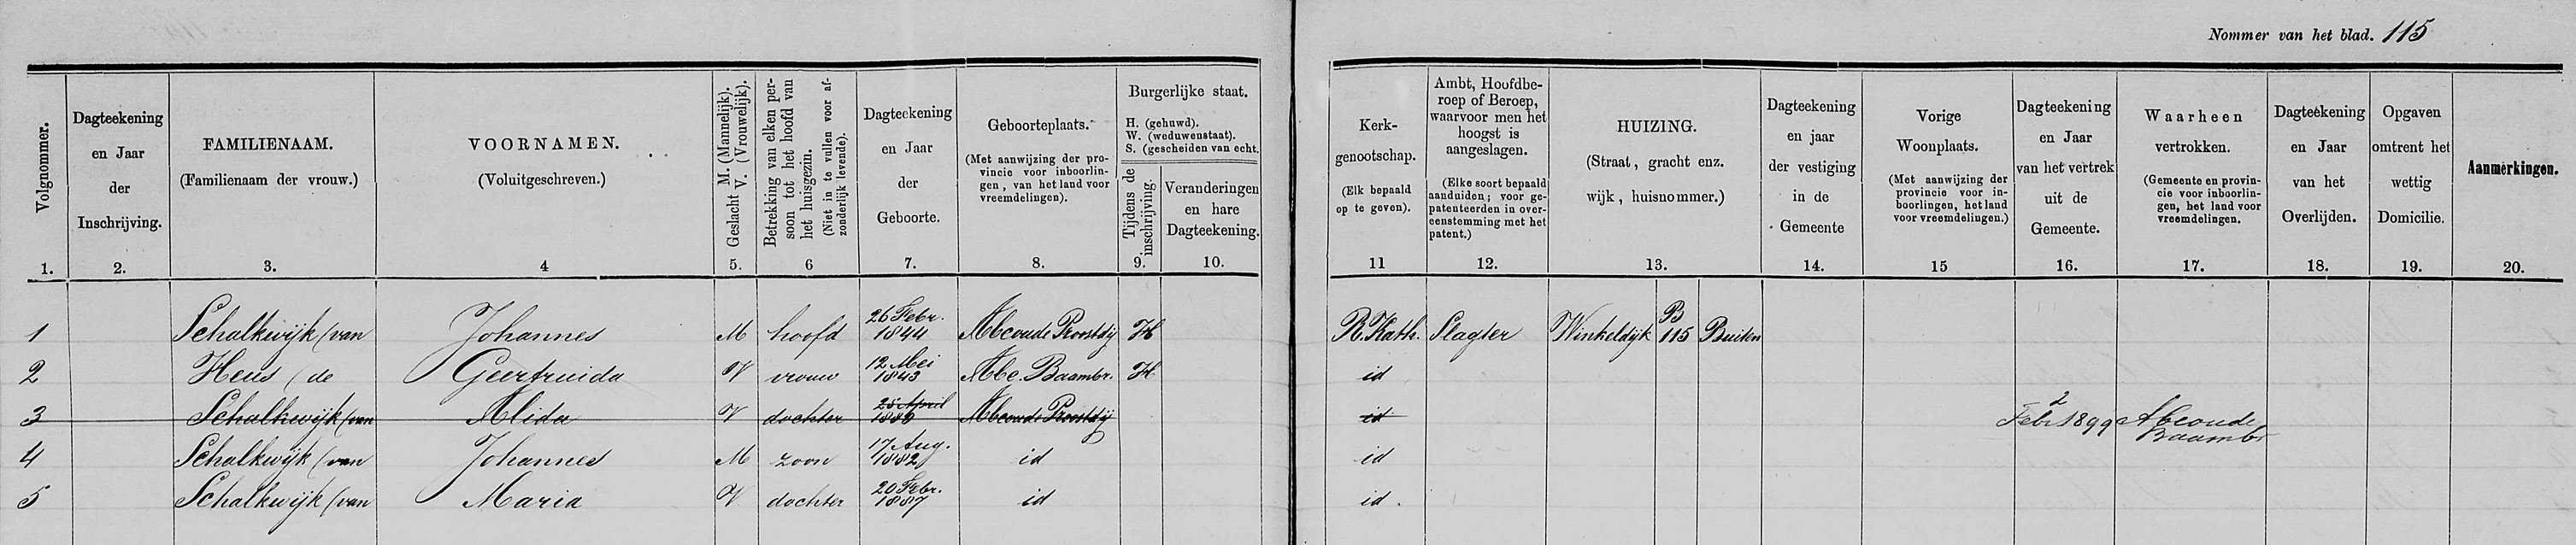 Nommer van het blad. 115
Volgnommer.
1.
Dagteekening
en Jaar
der
Inschrijving.
2.
FAMILIENAAM.
(Familienaam der vrouw.)
3.
VOORNAMEN.
(Voluitgeschreven.)
4
Geslacht M. (Mannelijk).
V. (Vrouwelijk).
5.
Betrekking van elken per-
soon tot het hoofd van
het huisgezin.
(Niet in te vullen voor af-
zonderlijk levende).
6
Dagteekening
en Jaar
der
Geboorte.
7.
Geboorteplaats.
(Met aanwijzing der pro-
vincie voor inboorlin-
gen, van het land voor
vreemdelingen).
8.
Burgerlijke staat.
H. (gehuwd).
W. (weduwenstaat).
S. (gescheiden van echt.
Tijdens de
inschrijving.
9.
Veranderingen
en hare
Dagteekening.
10.
Kerk-
genootschap.
(Elk bepaald
op te geven).
11
Ambt, Hoofdbe-
roep of Beroep,
waarvoor men het
hoogst is
aangeslagen.
(Elke soort bepaald
aanduiden; voor ge-
patenteerden in over-
eenstemming met het
patent.)
12.
HUIZING.
(Straat, gracht enz.
wijk, huisnommer.)
13.
Dagteekening
en jaar
der vestiging
in de
Gemeente
14.
Vorige
Woonplaats.
(Met aanwijzing der
provincie voor in-
boorlingen, het land
voor vreemdelingen.)
15
Dagteekening
en Jaar
van het vertrek
uit de
Gemeente.
16.
Waarheen
vertrokken.
(Gemeente en provin-
cie voor inboorlin-
gen, het land voor
vreemdelingen.
17.
Dagteekening
en Jaar
van het
Overlijden.
18.
Opgaven
omtrent het
wettig
Domicilie.
19.
Aanmerkingen.
20.
1 Schalkwijk (van Johannes M hoofd 26 Febr. 1844 Abcoude Proostdij H R. Kath. Slagter Winkeldijk B 115 Buiten
2 Heus (de Geertruida V vrouw 12 Mei 1843 Abc. Baambr. H id
3 Schalkwijk (van Alida V dochter 25 April 1880 Abcoude Proostdij id 2 Febr 1899 Abcoude Baambr
4 Schalkwijk (van Johannes M zoon 17 Aug. 1882 id id
5 Schalkwijk (van Maria V dochter 20 Febr. 1887 id id.